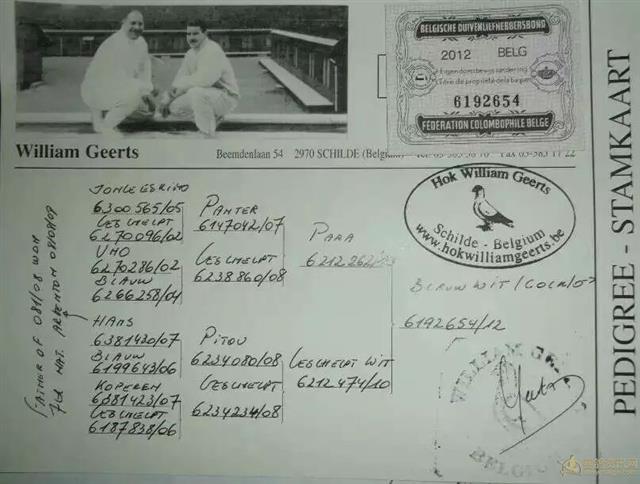 BELGISCHE DUIVENLIEFHEBBERSBOND
2012 BELG
Eigendomsbewijs van den ring
Titre de propriété de la bague
6192654
FEDERATION COLOMBOPHILE BELGE
William Geerts
Beemdenlaan 54 2970 SCHILDE (Belgium)
Hok William Geerts
Schilde - Belgium
www.hokwilliamgeerts.be
PEDIGREE - STAMKAART
6300565/05
GESCHELPT
6270096/02
UNO
6270286/02
BLAUW
6266258/04
HANS
6381420/07
BLAUW
6199643/06
KOPEREN
6381423/07
GESCHELPT
6187838/06
PANTER
6147042/07
GESCHELPT
6238860/08
PITOU
6234080/08
GESCHELPT
6234234/08
PARA
GESCHELPT WIT
6212474/10
BLAUW WIT
6192654/12
FATHER OF 081/08 WON
7th NAT. ARGENTON 08/08/09
WILLIAM
BELGIUM